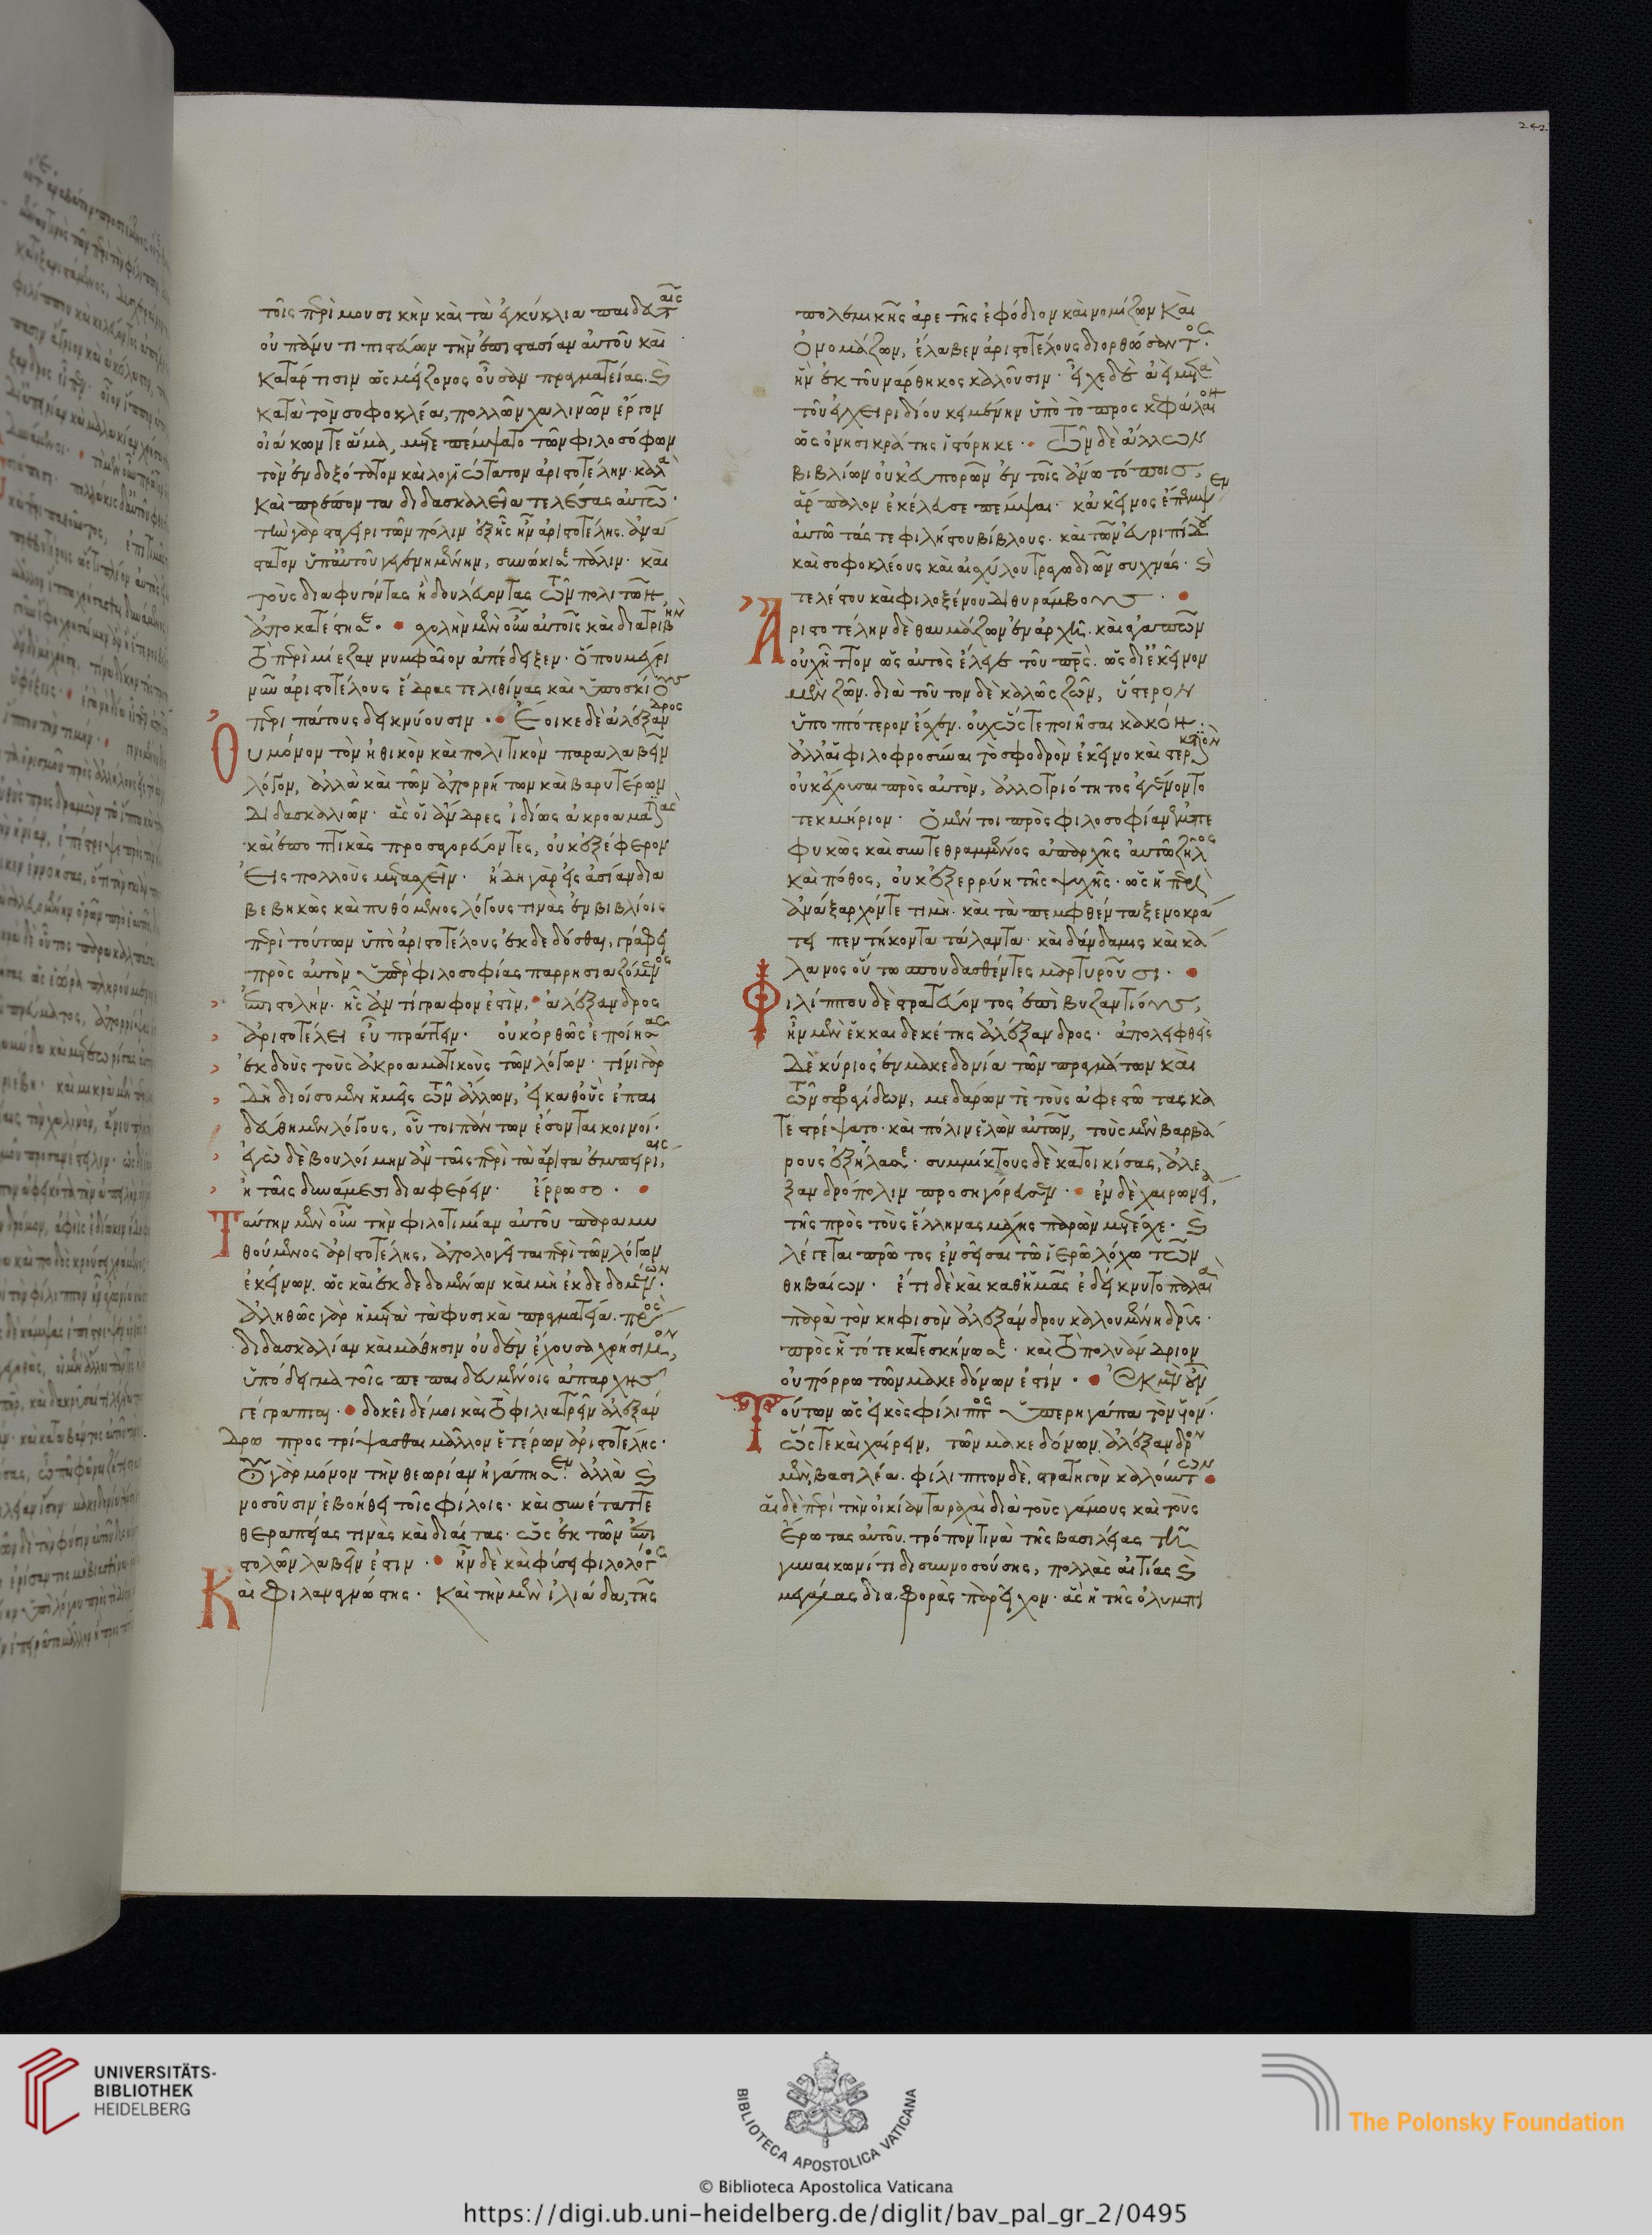 242
τοῖς περὶ μουσικὴν καὶ τὰ ἐγκύκλια παιδευταῖς
οὐ πάνυ τι πιστεύων τὴν ἐπιστασίαν αὐτοῦ καὶ
κατάρτισιν ὡς μείζονος οὖσαν πραγματείας. καὶ
κατὰ τὸν σοφοκλέα, πολλῶν χαλινῶν ἔργον
οἰάκων τε ἅμα, μετεπέμψατο τῶν φιλοσόφων
τὸν ἐνδοξότατον καὶ λογιώτατον ἀριστοτέλην· καλὰ
καὶ πρέποντα διδασκαλεῖα τελέσας αὐτῶ·
τὴν γὰρ σταγειριτῶν πόλιν ἐξ ἧς ἦν ἀριστοτέλης. ἀνά
στατον ὑπ' αὐτοῦ γεγενημένην, συνώκισε πάλιν· καὶ
τοὺς διαφυγόντας ἢ δουλεύοντας τῶν πολιτῶν
ἀποκατέστησε· σχολὴν μὲν οὖν αὐτοῖς καὶ διατριβὴν
τὸ περὶ μίεζαν νυμφαῖον ἀπέδειξεν· ὅπου μέχρι
νῦν ἀριστοτέλους ἕδρας τε λιθίνας καὶ ὑποσκίους
περιπάτους δεικνύουσιν· Ἔοικε δὲ ἀλέξανδρος
οὐ μόνον τὸν ἠθικὸν καὶ πολιτικὸν παραλαβεῖν
λόγον, ἀλλὰ καὶ τῶν ἀπορρήτων καὶ βαρυτέρων
διδασκαλιῶν· ἃς οἱ ἄνδρες ἰδίως ἀκροαματικὰς
καὶ ἐποπτικὰς προσαγορεύοντες, οὐκ ἐξέφερον
εἰς πολλοὺς μετασχεῖν· ἤδη γὰρ εἰς ἀσίαν δια
βεβηκὼς καὶ πυθόμενος λόγους τινὰς ἐν βιβλίοις
περὶ τούτων ὑπὸ ἀριστοτέλους ἐκδεδόσθαι, γράφει
πρὸς αὐτὸν ὑπὲρ φιλοσοφίας παρρησιαζόμενος
ἐπιστολήν· ἧς ἀντίγραφον ἐστίν, ἀλέξανδρος
ἀριστοτέλει εὖ πράττειν· οὐκ ὀρθῶς ἐποίησας
ἐκδοὺς τοὺς ἀκροαματικοὺς τῶν λόγων· τίνι γὰρ
δὴ διοίσομεν ἡμεῖς τῶν ἄλλων, εἰ καθ' οὓς ἐπαι
δεύθημεν λόγους, οὗτοι πάντων ἔσονται κοινοί·
ἐγὼ δὲ βουλοίμην ἂν ταῖς περὶ τὰ ἄριστα ἐμπειρίαις,
ἢ ταῖς δυνάμεσι διαφέρειν· ἔρρωσο·
Ταύτην μὲν οὖν τὴν φιλοτιμίαν αὐτοῦ παραμυ
θούμενος ἀριστοτέλης, ἀπολογεῖται περὶ τῶν λόγων
ἐκείνων. ὡς καὶ ἐκδεδομένων καὶ μὴ ἐκδεδομένων·
ἀληθῶς γὰρ ἡ μετὰ τὰ φυσικὰ πραγματεία. πρὸς
διδασκαλίαν καὶ μάθησιν οὐδὲν ἔχουσα χρήσιμον,
ὑπόδειγμα τοῖς πεπαιδευμένοις ἀπαρχῆς
γέγραπται· δοκεῖ δέ μοι καὶ τὸ φιλιατρεῖν ἀλεξάν
δρω προστρίψασθαι μᾶλλον ἑτέρων ἀριστοτέλης·
οὐ γὰρ μόνον τὴν θεωρίαν ἠγάπησεν· ἀλλὰ καὶ
νοσοῦσιν ἐβοήθει τοῖς φίλοις· καὶ συνέταττε
θεραπείας τινὰς καὶ διαίτας· ὡς ἐκ τῶν ἐπι
στολῶν λαβεῖν ἐστιν· ἦν δὲ καὶ φύσει φιλολόγος
Καὶ φιλαναγνώστης· Καὶ τὴν μὲν ἰλιάδα, τῆς
πολεμικῆς ἀρετῆς ἐφόδιον καὶ νομίζων καὶ
ὀνομάζων, ἔλαβεν ἀριστοτέλους διορθώσαντος·
ἣν ἐκ τοῦ νάρθηκος καλοῦσιν· εἶχε δὲ ἀεὶ μετὰ
τοῦ ἐγχειριδίου κειμένην ὑπὸ τὸ προσκεφάλαιον
ὡς ὀνησικράτης ἱστόρηκε· Τῶν δὲ ἄλλων
βιβλίων οὐκ εὐπορῶν ἐν τοῖς ἄνω τόποις,
ἅρπαλον ἐκέλευσε πέμψαι· κἀκεῖνος ἔπεμψεν
αὐτῶ τάς τε φιλήστου βίβλους· καὶ τῶν εὐριπίδου
καὶ σοφοκλέους καὶ αἰσχύλου τραγωδιῶν συχνάς· καὶ
τελέστου καὶ φιλοξένου διθυράμβους·
Ἀριστοτέλην δὲ θαυμάζων ἐν ἀρχῆ· καὶ ἀγαπῶν
οὐχ ἧττον ὡς αὐτὸς ἔλεγε τοῦ πατρός. ὡς δι' ἐκεῖνον
μὲν ζῶν. διὰ τοῦτον δὲ καλῶς ζῶν, ὕστερον
ὑποπτότερον ἔσχεν. οὐχ ὥστε ποιῆσαι κακόν·
ἀλλ' αἱ φιλοφροσύναι τὸ σφοδρὸν ἐκεῖνο καὶ στερκτικὸν
οὐκ ἔχουσαι πρὸς αὐτὸν, ἀλλοτριότητος ἐγένοντο
τεκμήριον· Ὁ μέντοι πρὸς φιλοσοφίαν ἐμπε
φυκὼς καὶ συντεθραμμένος ἀπαρχῆς αὐτῶ ζῆλος
καὶ πόθος, οὐκ ἐξερρύη τῆς ψυχῆς· ὡς ἡ περὶ
ἀνάξαρχόν τε τιμὴ. καὶ τὰ πεμφθέντα ξενοκρά
τει πεντήκοντα τάλαντα· καὶ δάνδαμις καὶ κά
λανος οὕτω σπουδασθέντες μαρτυροῦσι·
Φιλίππου δὲ στρατεύοντος ἐπὶ βυζαντίους,
ἦν μὲν ἑκκαιδεκέτης ἀλέξανδρος· ἀπολειφθεὶς
δὲ κύριος ἐν μακεδονία τῶν πραγμάτων καὶ
τῶν σφραγίδων, μεδαρῶν τε τοὺς ἀφεστῶτας κα
τεστρέψατο· καὶ πόλιν ἑλὼν αὐτῶν, τοὺς μὲν βαρβά
ρους ἐξήλασε· συμμίκτους δὲ κατοικίσας, ἀλε
ξανδρόπολιν προσηγόρευσεν· ἐν δὲ χαιρωνεία,
τῆς πρὸς τοὺς ἕλληνας μάχης παρὼν μετέσχε· καὶ
λέγεται πρῶτος ἐνσεῖσαι τῶ ἱερῶ λόχω τῶν
θηβαίων· ἔτι δὲ καὶ καθ' ἡμᾶς ἐδείκνυτο παλαιὰ
παρὰ τὸν κηφισὸν ἀλεξάνδρου καλουμένη δρῦς·
πρὸς ἣ τότε κατεσκήνωσε· καὶ τὸ πολυάνδριον
οὐ πόρρω τῶν μακεδόνων ἐστίν· Ἐκ μὲν οὖν
Τούτων ὡς εἰκὸς φίλιππος ὑπερηγάπα τὸν υἱόν·
ὥστε καὶ χαίρειν, τῶν μακεδόνων. ἀλέξανδρον
μὲν, βασιλέα. φίλιππον δὲ, στρατηγὸν καλούντων
αἱ δὲ περὶ τὴν οἰκίαν ταραχαὶ διὰ τοὺς γάμους καὶ τοὺς
ἔρωτας αὐτοῦ. τρόπον τινὰ τῆς βασιλείας τῆ
γυναικωνίτιδι συννοσούσης, πολλὰς αἰτίας καὶ
μεγάλας διαφορὰς παρεῖχον· ἃς ἡ τῆς ὀλυμπι
UNIVERSITÄTS-
BIBLIOTHEK
HEIDELBERG
BIBLIOTECA APOSTOLICA VATICANA
The Polonsky Foundation
© Biblioteca Apostolica Vaticana
https://digi.ub.uni-heidelberg.de/diglit/bav_pal_gr_2/0495